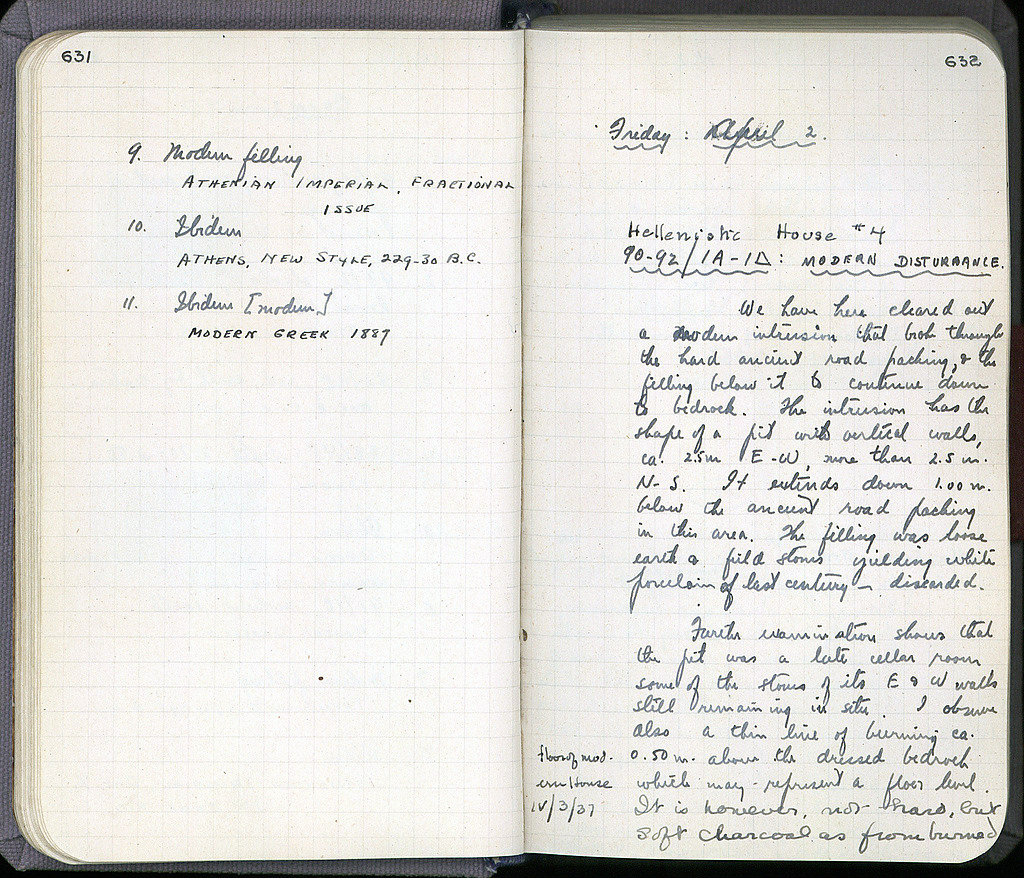 631
9. Modern filling
ATHENIAN IMPERIAL, FRACTIONAL
ISSUE
10. Ibidem
ATHENS, NEW STYLE, 229-30 B.C.
11. Ibidem [modern]
MODERN GREEK 1887
632
Friday: April 2.
Hellenistic House #4
90-92/1A-1Δ: MODERN DISTURBANCE.
We have here cleared out
a modern intrusion that broke through
the hard ancient road packing, & the
filling below it to continue down
to bedrock. The intrusion has the
shape of a pit with vertical walls,
ca. 2.5m E-W, more than 2.5 m.
N-S. It extends down 1.00 m.
below the ancient road packing
in this area. The filling was loose
earth & field stones yielding white
porcelain of last century – discarded.
Further examination shows that
the pit was a late cellar room
some of the stones of its E & W walls
still remaining in situ. I observe
also a thin line of burning ca.
0.50 m. above the dressed bedrock
which may represent a floor level.
It is however, not hard, but
soft charcoal as from burned
floor of mod-
ern House
IV/3/37